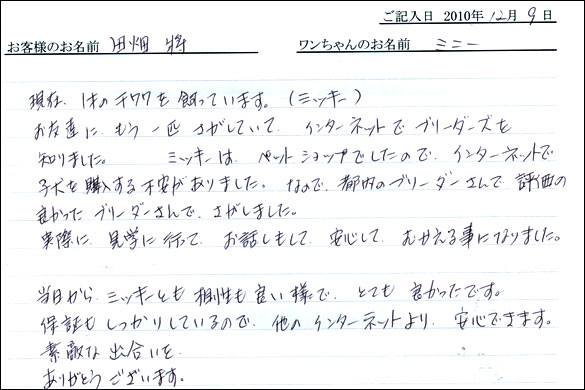 ご記入日 2010年12月9日
お客様のお名前 田畑 将 ワンちゃんのお名前 ミニー
現在、1才のチワワを飼っています。(ミッキー)
お友達に、もう一匹 さがしていて、インターネットで ブリーダーズを
知りました。 ミッキーは、ペットショップでしたので、インターネットで
子犬を購入する不安がありました。なので、都内のブリーダーさんで、評価の
良かった ブリーダーさんで、さがしました。
実際に、見学に行って、お話しもして、安心して、むかえる事になりました。
当日から、ミッキーとも 相性も良い様で、とても 良かったです。
保証も しっかりしているので、他の インターネットより、安心できます。
素敵な 出合いを
ありがとう ございます。